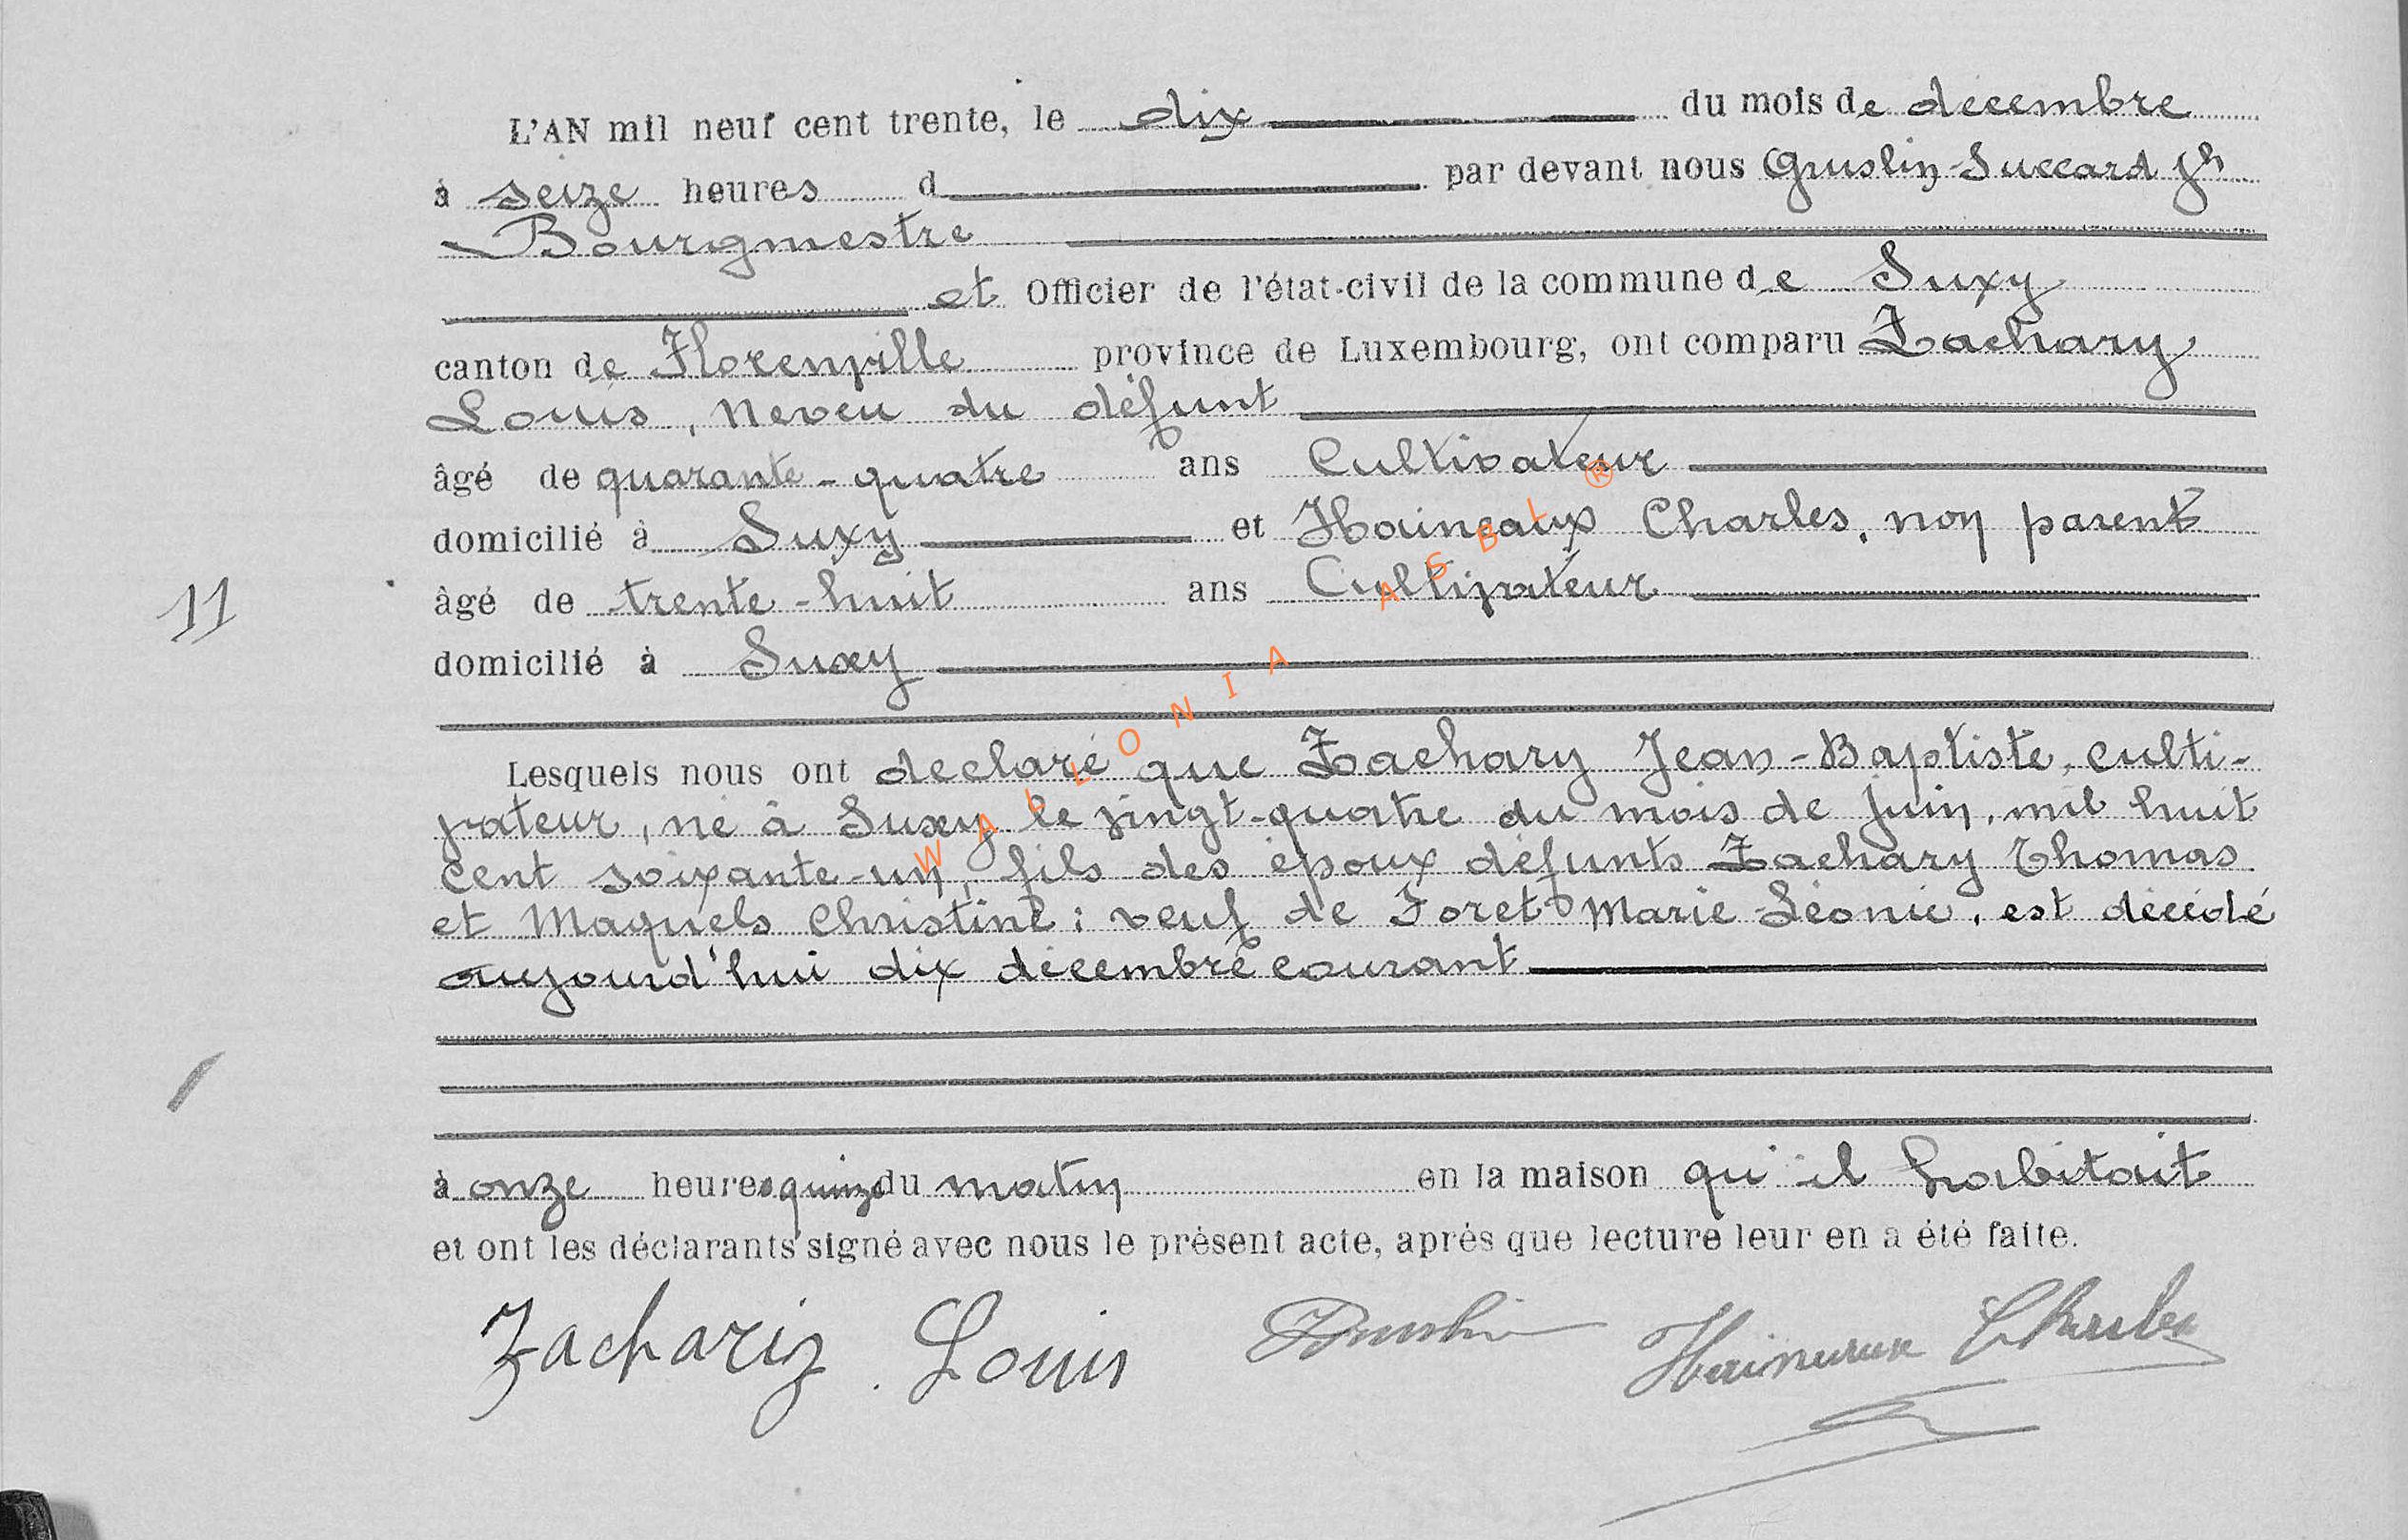 L'AN mil neuf cent trente, le dix du mois de décembre
à seize heures d par devant nous Gruslin-Succard Jh
Bourgmestre
et Officier de l'état-civil de la commune de Suxy
canton de Florenville province de Luxembourg, ont comparu Zachary
Louis, neveu du défunt
âgé de quarante-quatre ans Cultivateur
domicilié à Suxy et Haineaux Charles, non parent
âgé de trente-huit ans Cultivateur
domicilié à Suxy
11
Lesquels nous ont declaré que Zachary Jean-Baptiste, culti-
vateur, né à Suxy le vingt-quatre du mois de juin, mil huit
cent soixante-un, fils des époux défunts Zachary Thomas
et Maquels Christine; veuf de Foret Marie-Léonie, est décédé
aujourd'hui dix décembre courant
à onze heures quinze du matin en la maison qu'il habitait
et ont les déclarants signé avec nous le présent acte, après que lecture leur en a été faite.
Zachariy Louis Gruslin Haineaux Charles
WALLONIA ASBL ®